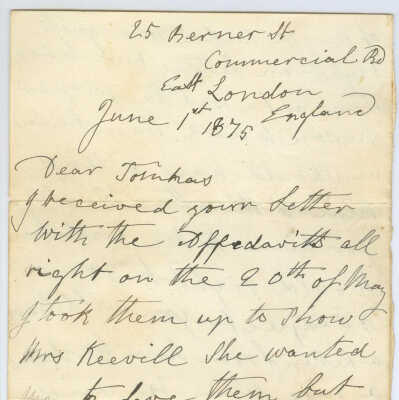 25 Berner St
Commercial Rd
East London
June 1st 1875 England
Dear Tomhas
I received your Letter
With the Affedavitts all
right on the 20th of May
I took them up to Show
Mrs Keevill She wanted
to Leve them but